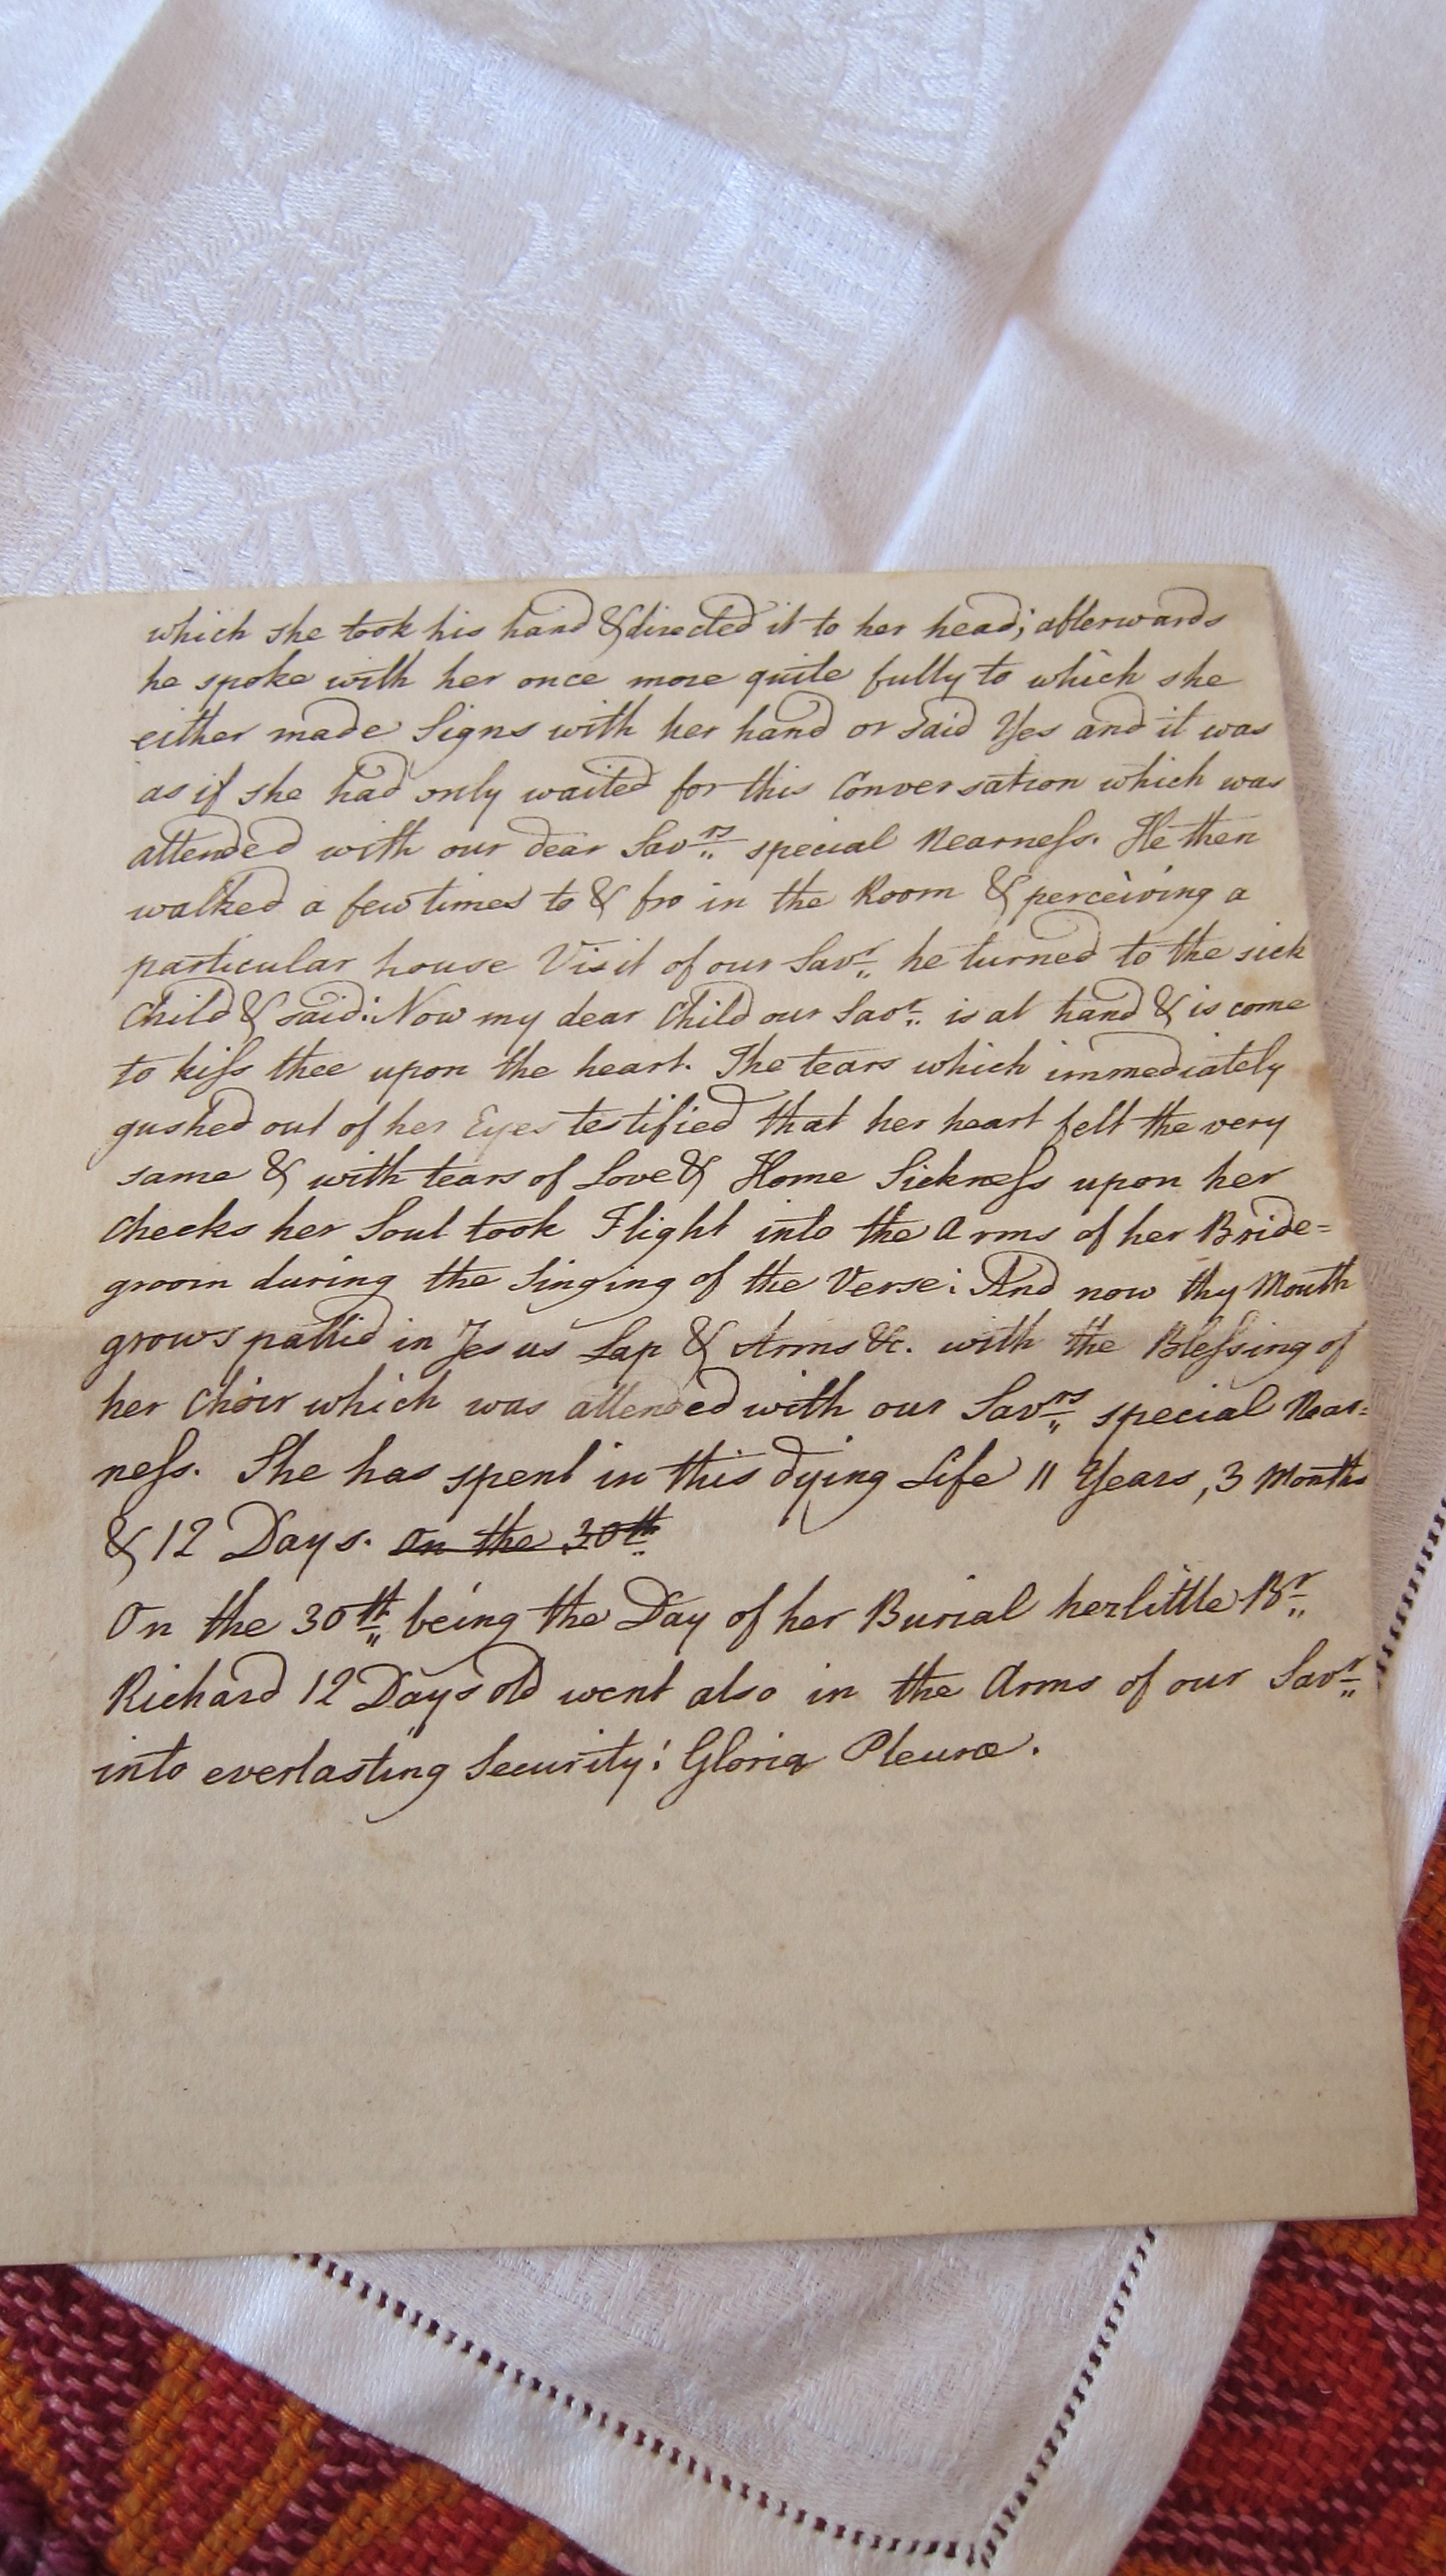 which she took his hand & directed it to her head; afterwards
he spoke with her once more quite fully to which she
either made Signs with her hand or said Yes and it was
as if she had only waited for this Conversation which was
attended with our dear Savrs special Nearness. He then
walked a few times to & fro in the Room & perceiving a
particular house Visit of our Savr he turned to the sick
Child & said: Now my dear Child our Savr is at hand & is come
to kiss thee upon the heart. The tears which immediately
gushed out of her Eyes testified that her heart felt the very
same & with tears of Love & Home Sickness upon her
Cheeks her Soul took Flight into the Arms of her Bride=
groom during the Singing of the Verse: And now thy Mouth
grows pallid in Jesus Lap & Arms &c. with the Blessing of
her Choir which was attended with our Savrs special Near=
ness. She has spent in this dying Life 11 Years, 3 Months
& 12 Days. On the 30th
On the 30th being the Day of her Burial her little Br
Richard 12 Days old went also in the Arms of our Savr
into everlasting Security: Gloria Pleuræ.